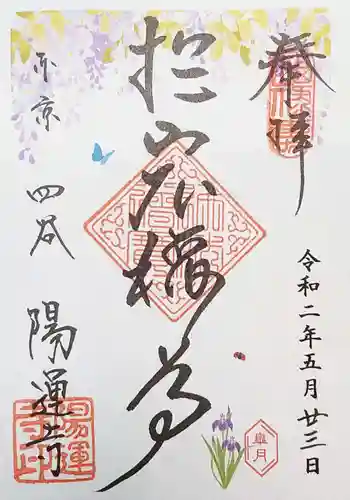 奉拝
令和二年五月廿三日
於岩
皐月
東京
四谷
陽運寺